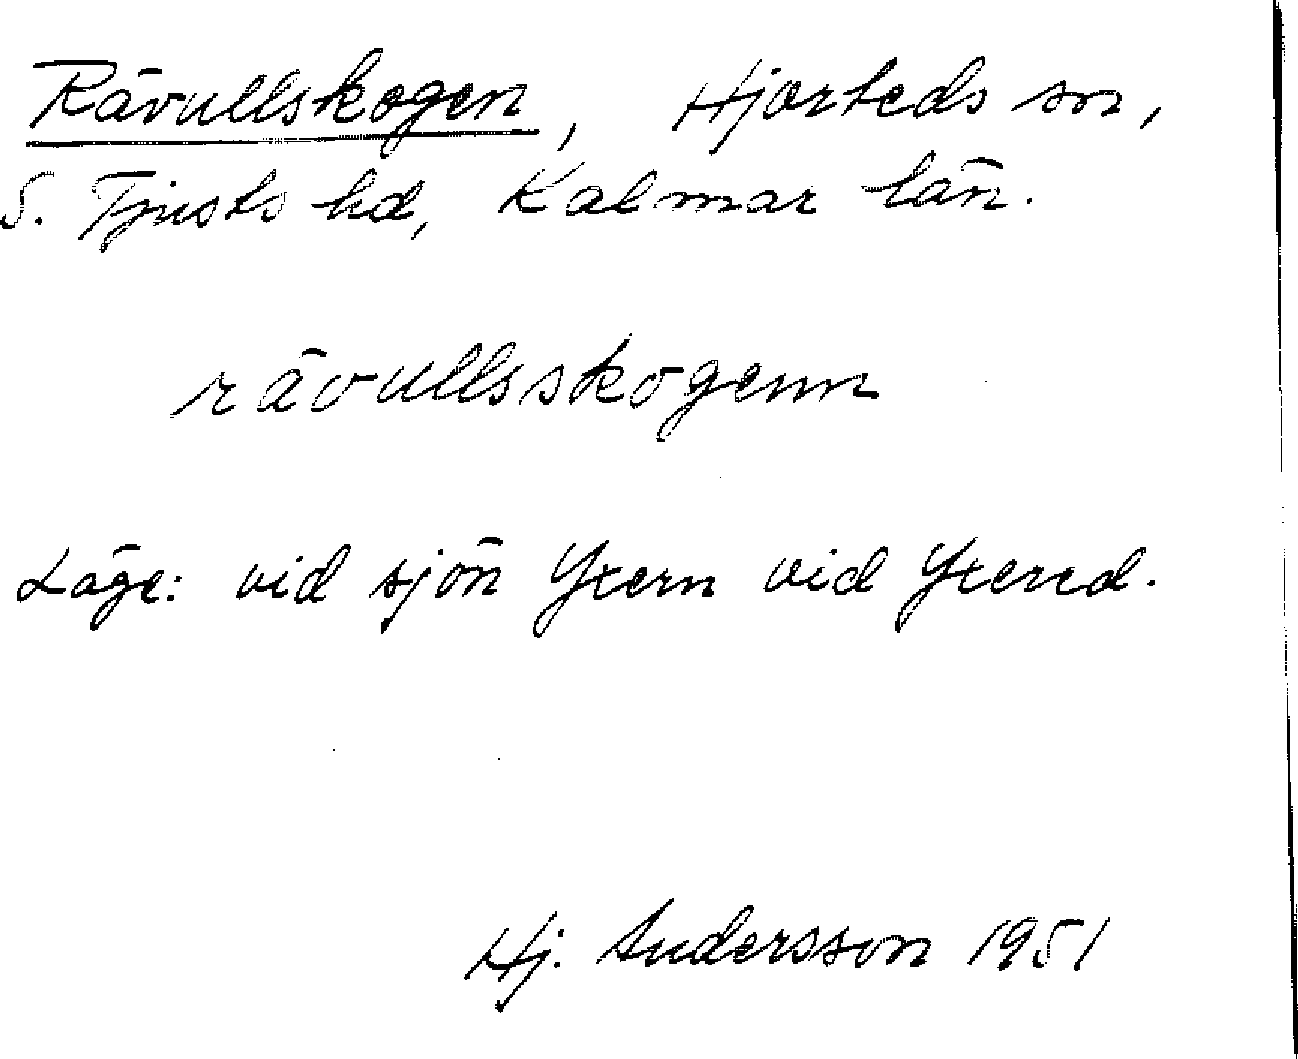 Rävullskogen, Hjorteds sn,
S. Tjusts hd, Kalmar län.
rävullsskogenn
Läge: vid sjön Yxern vid Yxered.
Hj. Andersson 1951